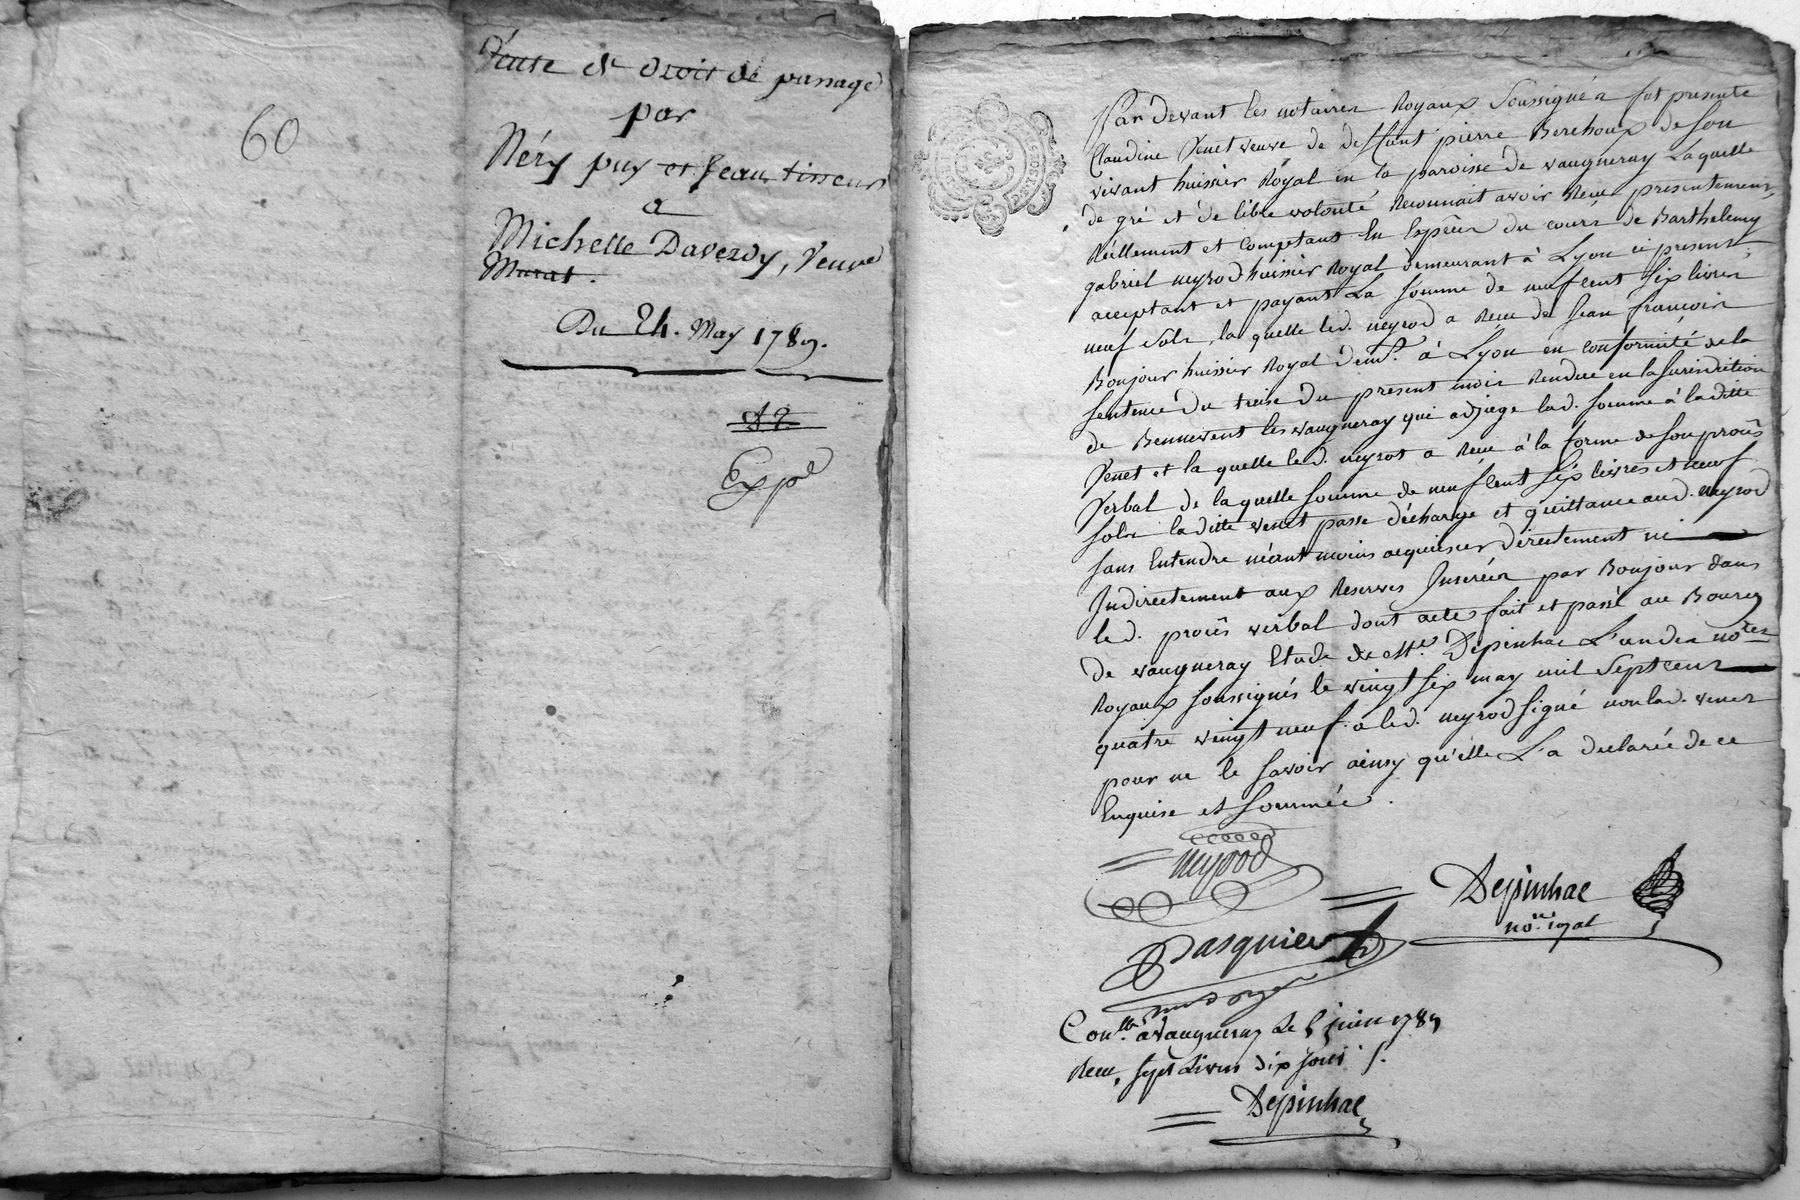 60
Vente de droit de passage
par
Néry puy et Jean tisseur
a
Michelle Daverdy, Veuve
Murat.
Du 24. May 1789.
Expé
Par devant les notaires Royaux Soussignés fut presente
Claudine Venet veuve de deffunt pierre Berchoux de son
vivant huissier Royal en la paroisse de vaugneray Laquelle
de gré et de libre volonté Reconnait avoir Reçu presentement
Réellement et comptant En Espèces du cours de Barthelemy
gabriel neyrod huissier Royal demeurant à Lyon ci present
acceptant et payant La somme de neuf cent six livres
neuf sols, la quelle led. neyrod a Reçu de Jean francois
Bonjour huissier Royal demt. à Lyon en conformité de la
sentence du treise du present mois Rendue en la Jurisdiction
de Bennevent les vaugneray qui adjuge lad. somme à laditte
Venet et la quelle led. neyrod a Reçu à la forme de son procès
Verbal de la quelle somme de neuf cent six livres et neuf
sols laditte venet passe décharge et quittance aud. neyrod
sans Entendre néantmoins acquiescer directement ni
Indirectement aux Reserves Inserées par Bonjour dans
led. procès verbal dont acte fait et passé au Bourg
de vaugneray Etude de Me. Depinhac L'un des nores
Royaux soussignés le vingt six may mil sept cent
quatre vingt neuf. a led. neyrod signé non lad. venet
pour ne le savoir ainsy qu'elle L'a declarée de ce
Enquise et sommée.
neyrod
Depinhac
nore. royal
Pasquier
Conllé. a Vaugneray Le 5 juin 1789
Recu, sept Livres dix sous
Depinhac